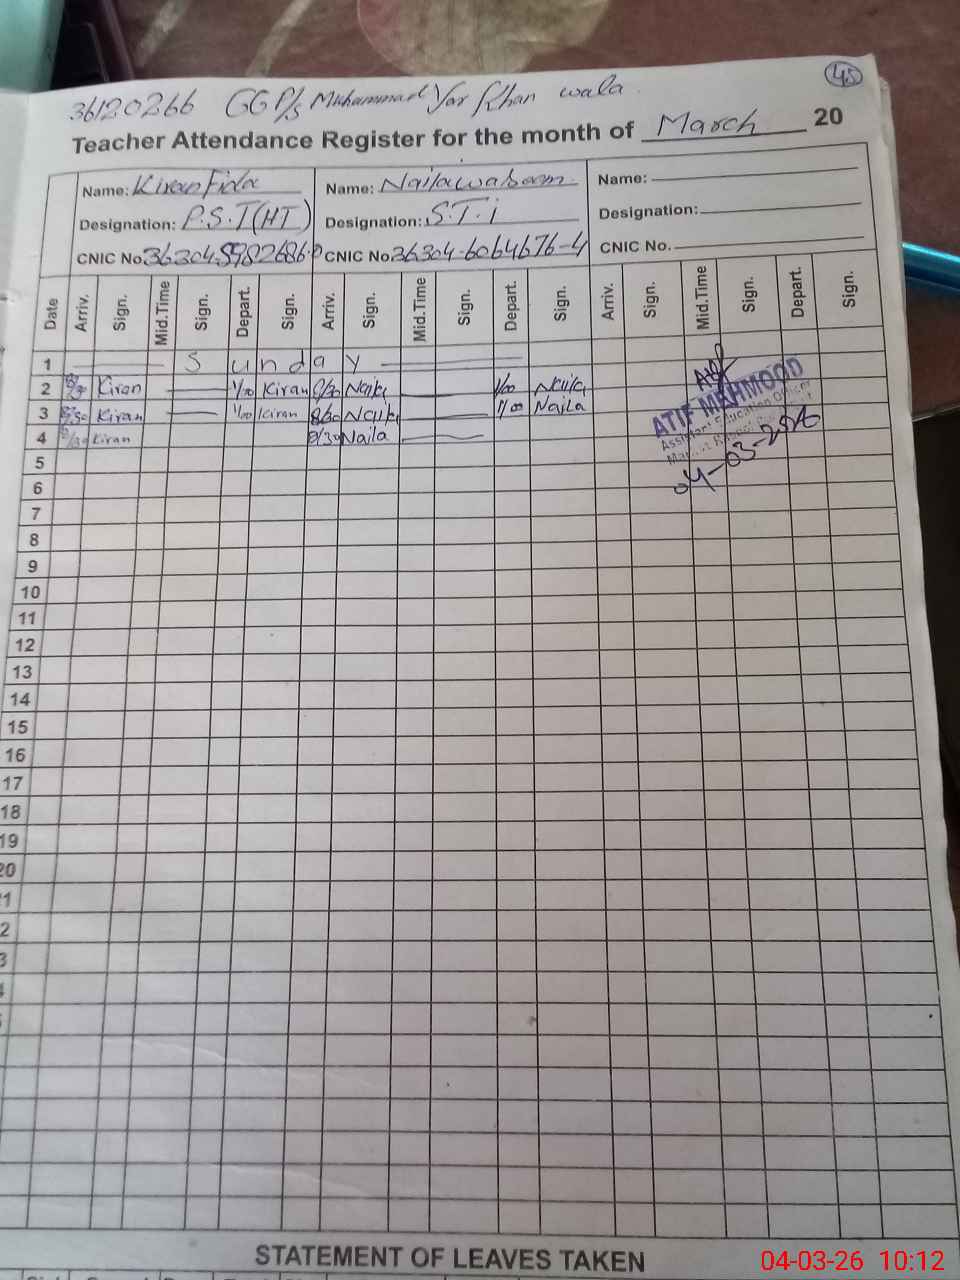 45
36120266 GGP/s Muhammad Yar Khan wala
Teacher Attendance Register for the month of March 20
Name: Kiran Fida Name: Naila wabsam Name:
Designation: P.S.T(HT) Designation: S.T.i Designation:
CNIC No. 36304-5982686-0 CNIC No. 36304-6064676-4 CNIC No.
Date Arriv. Sign. Mid.Time Sign. Depart. Sign. Arriv. Sign. Mid.Time Sign. Depart. Sign. Arriv. Sign. Mid.Time Sign. Depart. Sign.
1 S u n d a y
2 8/30 Kiran 1/00 Kiran 8/30 Naila 1/00 Naila
3 8/30 Kiran 1/00 Kiran 8/30 Naila 1/00 Naila
4 8/30 Kiran 8/30 Naila
ATIF MAHMOOD
Assistant Education Officer
04-03-2026
5
6
7
8
9
10
11
12
13
14
15
16
17
18
19
20
1
2
3
STATEMENT OF LEAVES TAKEN
04-03-26 10:12